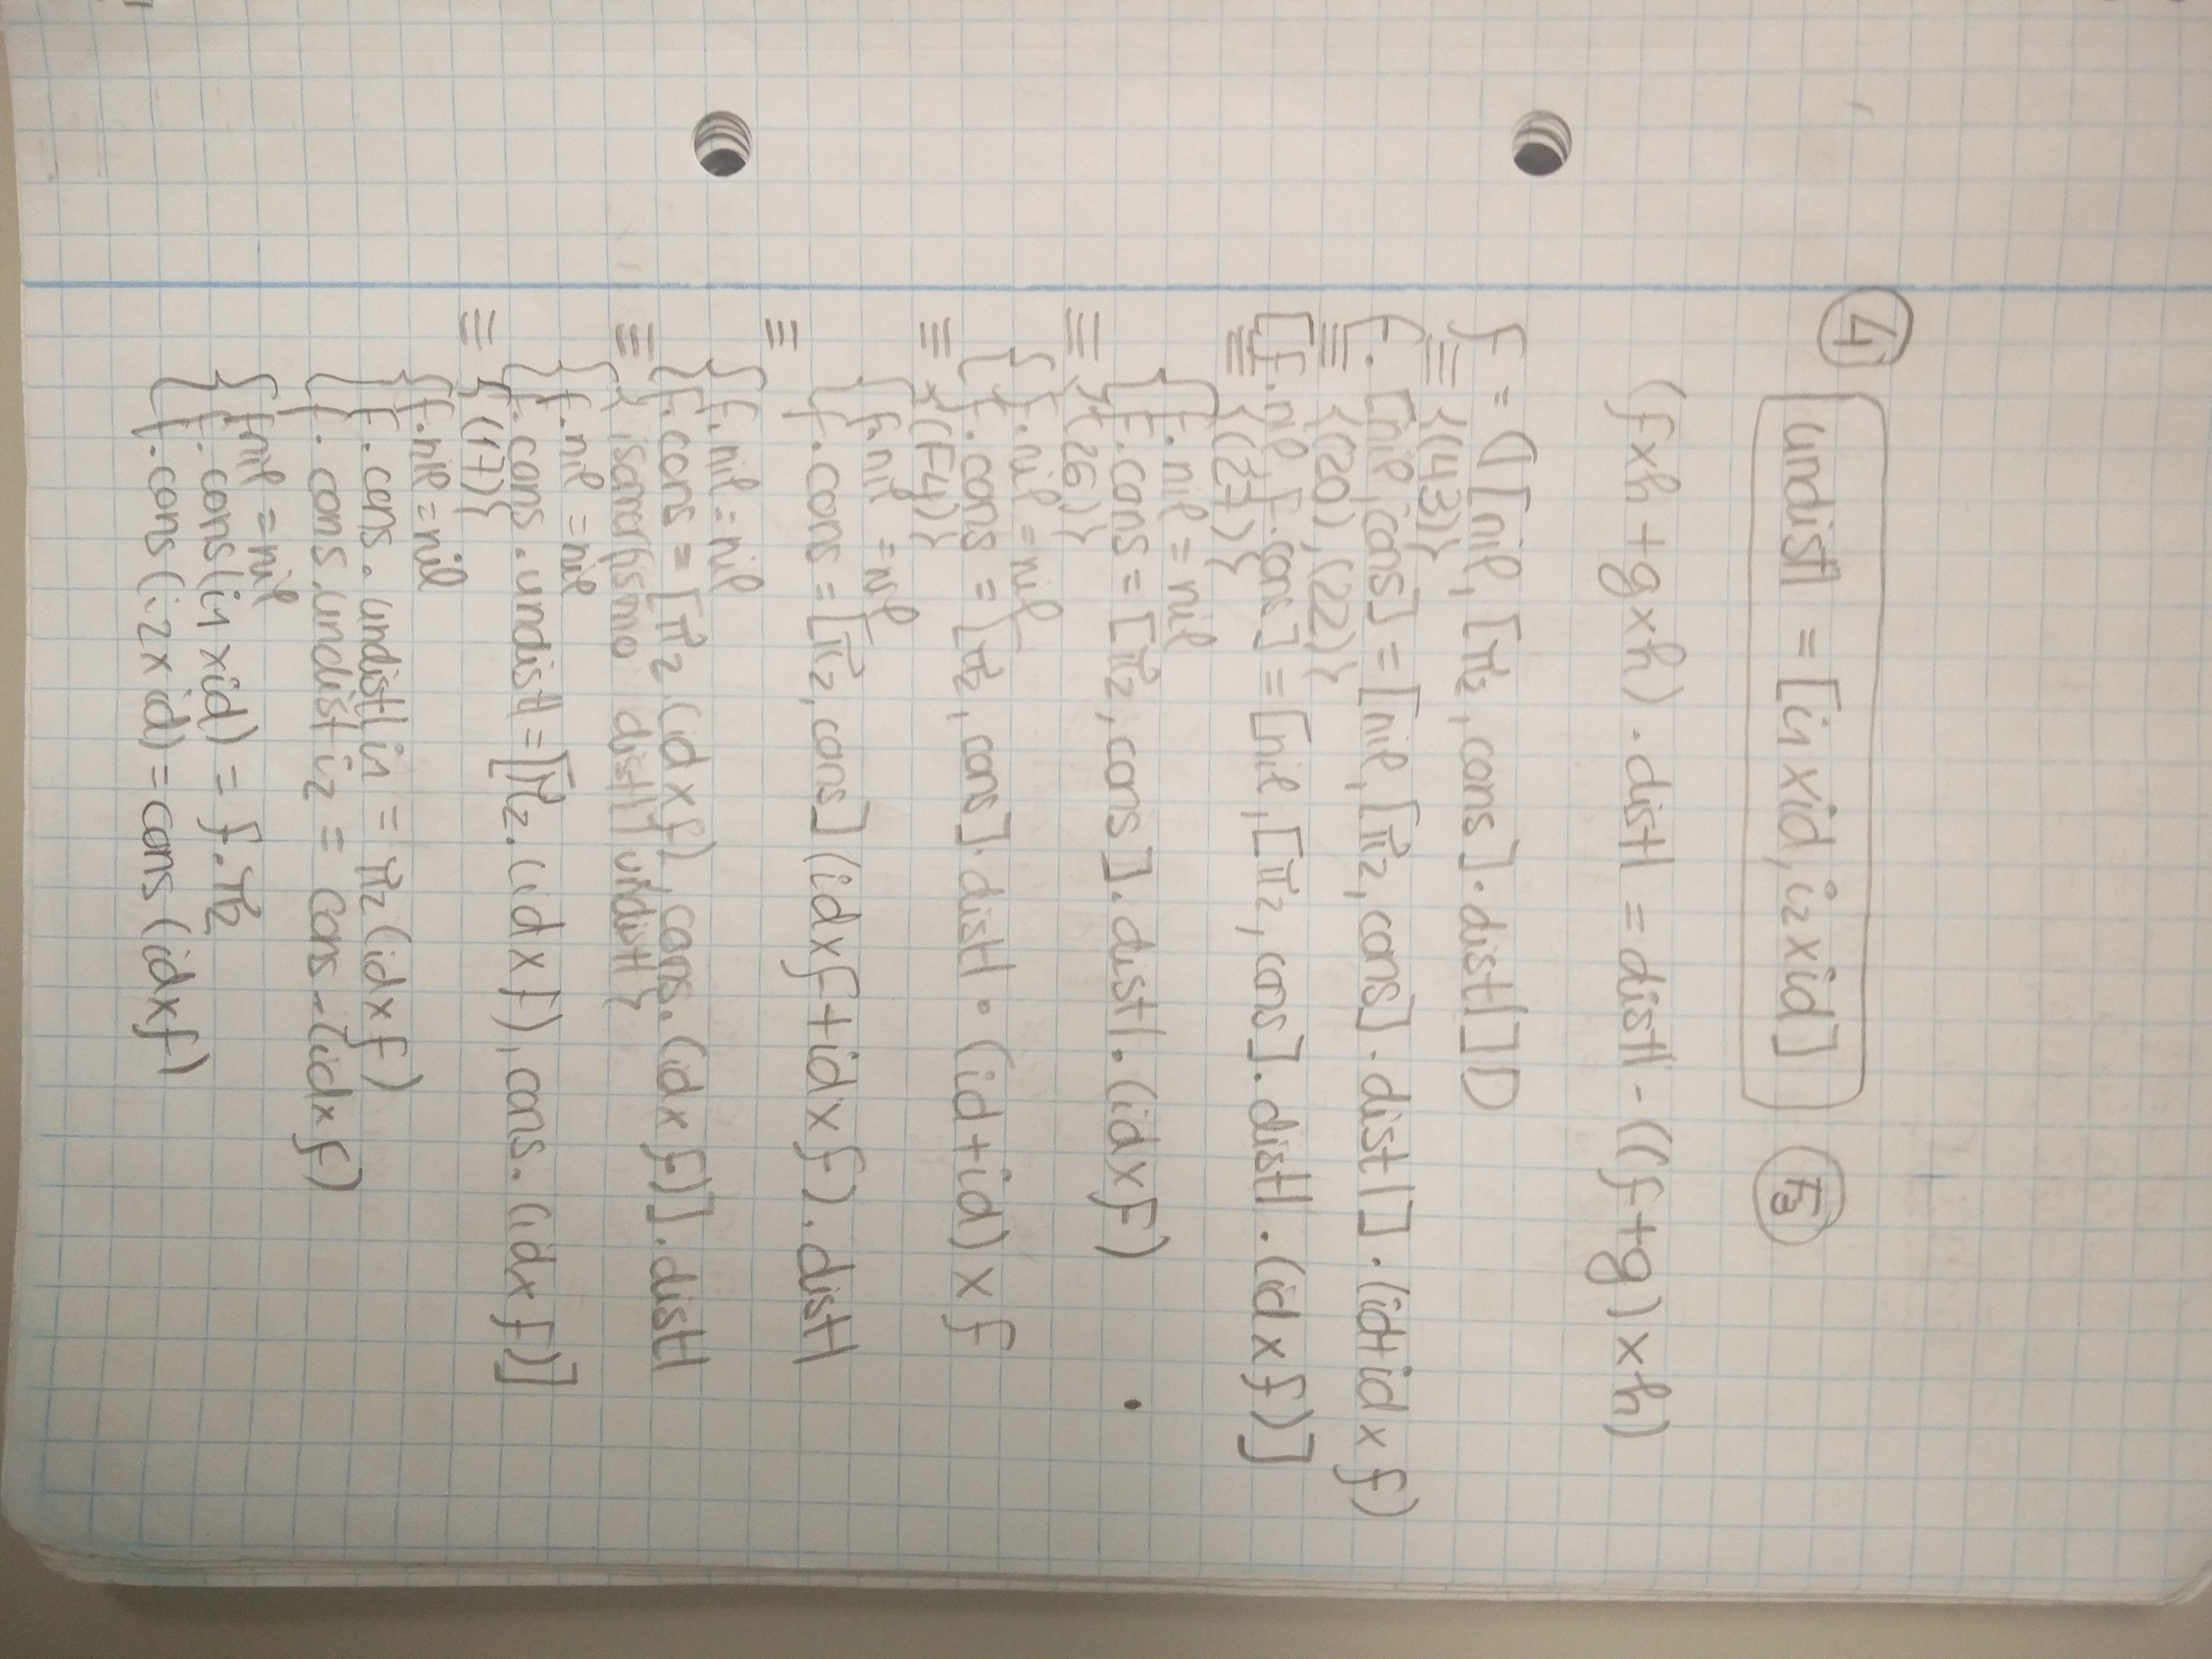 4 undistl = [i1 × id, i2 × id] F3
(f×h + g×h) . distl = distl - ((f+g) × h)
f = ⦇[nil, [π2, cons] . distl]⦈
≡ {(43)}
f. [nil, cons] = [nil, [π2, cons] . distl] . (id+id × f)
≡ {(20), (22)}
[f.nil, f.cons] = [nil, [π2, cons] . distl . (id × f)]
≡ {(27)}
{ f. nil = nil
f.cons = [π2, cons] . distl . (id×f)
≡ {(26)}
{ f.nil = nil
f. cons = [π2, cons] . distl . (id+id) × f
≡ {(F4)}
{ f.nil = nil
f. cons = [π2, cons] (id×f + id×f) . distl
≡
{ f. nil = nil
f.cons = [π2 . (id × f), cons. (id × f)] . distl
≡ { isomorfismo distl / undistl }
{ f.nil = nil
f. cons . undistl = [π2. (id × f), cons. (id × f)]
≡ {(17)}
{ f.nil = nil
f. cons . undistl i1 = π2 (id × f)
f. cons . undist i2 = cons - (id × f)
{ f nil = nil
f. cons (i1 × id) = f. π2
f. cons (i2 × id) = cons (id × f)